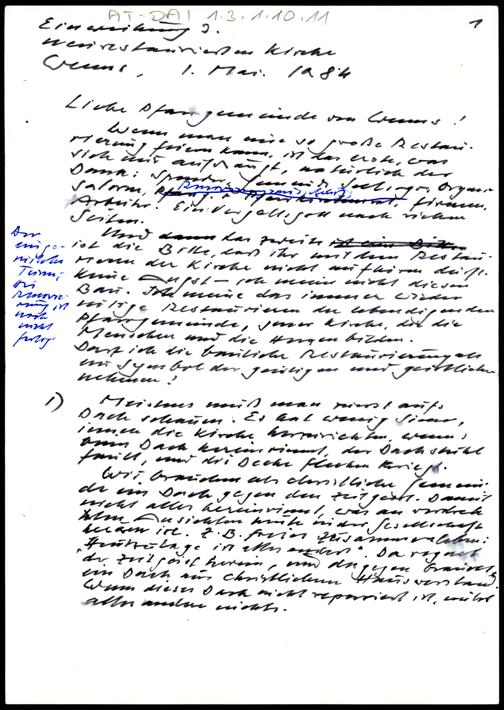 AT-DAI 1.3.1.10.11
1
Einweihung d.
neurestaurierten Kirche
Wenns, 1. Mai. 1984
Liebe Pfarrgemeinde von Wenns!
Wenn man eine so große Restau-
rierung feiern kann, ist das erste, was
sich mir aufdrängt, natürlich der
Dank: Spender, Gemeinde, Organi-
satoren, Firmen,
Arbeiter! Ein Vergeltsgott nach vielen
Seiten.
Und dann das zweite ist eine Bitte
ist die Bitte, daß ihr mit dem Restau-
rieren der Kirche nicht aufhören dürft.
Keine Angst - ich meine nicht diesen
Bau. Ich meine das immer wieder
nötige Restaurieren der lebendigen
Pfarrgemeinde, jener Kirche, die die
Menschen und die Herzen bilden.
Darf ich die bauliche Restaurierung als
ein Symbol der geistigen und geistlichen
nehmen!
Der
Turm,
die
Renovie-
rung ist
noch
nicht
1) Meistens muß man zuerst aufs
Dach schauen. Es hat wenig Sinn,
innen die Kirche herzurichten, wenns
beim Dach hereinrinnt, der Dachstuhl
fault, und die Decke Flecken kriegt.
Wir brauchen als christliche Gemein-
de ein Dach gegen den Zeitgeist. Damit
nicht alles hereinrinnt, was an verdreh-
ten Ansichten heute in der Gesellschaft
herum ist. Z.B. freies Zusammenleben:
"Heutzutage ist alles anders". Da regnet
der Zeitgeist herein, und dagegen brauchts
ein Dach aus christlichem Hausverstand.
Wenn dieses Dach nicht repariert ist, nützt
alles andere nichts.